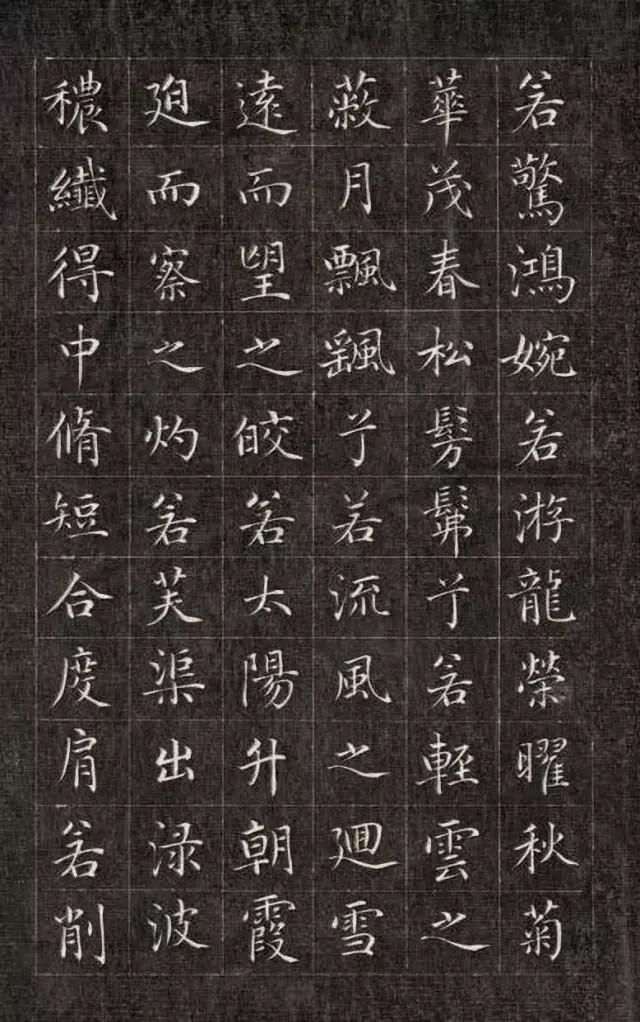 若驚鴻婉若游龍榮曜秋菊
華茂春松髣髴兮若輕雲之
蔽月飄颻兮若流風之廻雪
遠而望之皎若太陽升朝霞
廹而察之灼若芙渠出渌波
穠纖得中脩短合度肩若削